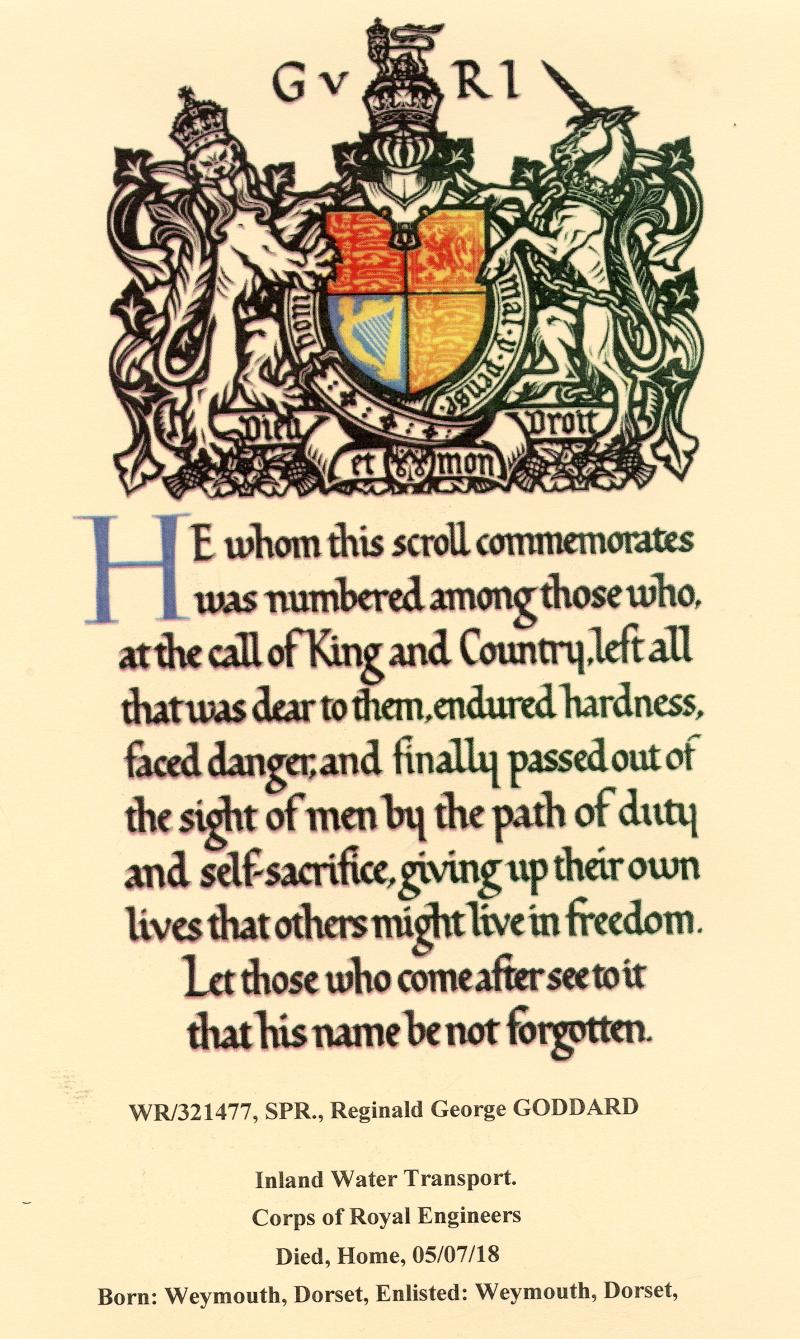 GV RI
hom mal·y·pense·
Dieu Droit
et mon
HE whom this scroll commemorates
was numbered among those who,
at the call of King and Country, left all
that was dear to them, endured hardness,
faced danger, and finally passed out of
the sight of men by the path of duty
and self-sacrifice, giving up their own
lives that others might live in freedom.
Let those who come after see to it
that his name be not forgotten.
WR/321477, SPR., Reginald George GODDARD
Inland Water Transport.
Corps of Royal Engineers
Died, Home, 05/07/18
Born: Weymouth, Dorset, Enlisted: Weymouth, Dorset,